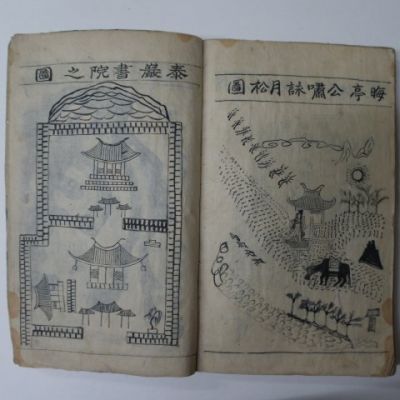 晦亭公嘯詠月松圖
泰巖書院之圖